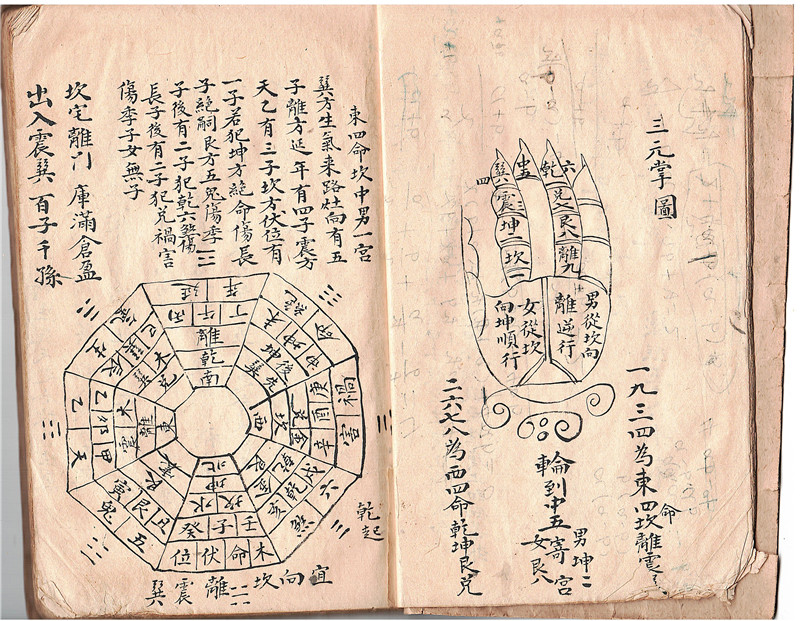 三元掌圖
一九三四為東四命坎離震
男從坎向
離逆行
女從坎
向坤順行
六
乾
兌七艮八離九
中五
四
巽震三坤二坎一
輪到中五寄宮
男坤二
女艮八
二六七八為西四命乾坤艮兌
東四命坎中男一宮
巽方生氣来路灶向有五
子離方延年有四子震方
天乙有三子坎方伏位有
一子若犯坤方絶命傷長
子絶嗣艮方五鬼傷季二
子後有二子犯乾六煞傷
長子後有二子犯兌禍害
傷季子女無子
坎宅離门 庫滿倉盈
出入震巽百子千孫
延年
丁午丙
離
乾
南
絶命
未坤申
坤後
巽先
禍害
庚酉辛
兌金
坎
西
六煞
戌乾亥
乾金
艮
木命伏位
壬子癸
坎水
坤
北
五鬼
丑艮寅
天乙
甲卯乙
震木
離
東
乾起
宜向坎離震巽